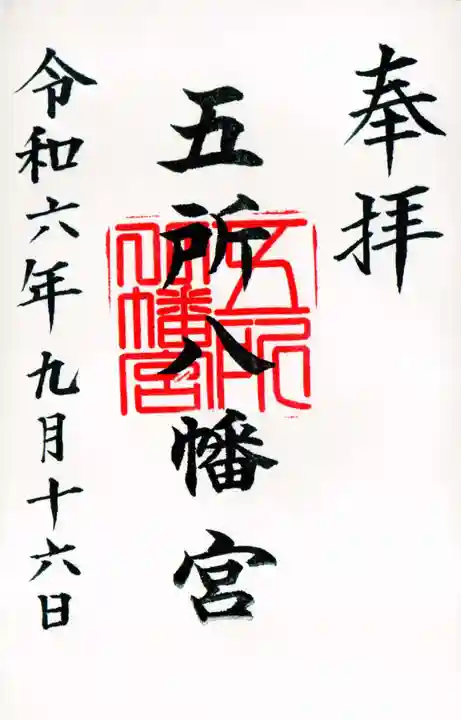 奉拝
五所八幡宮
五所
八幡宮
令和六年九月十六日